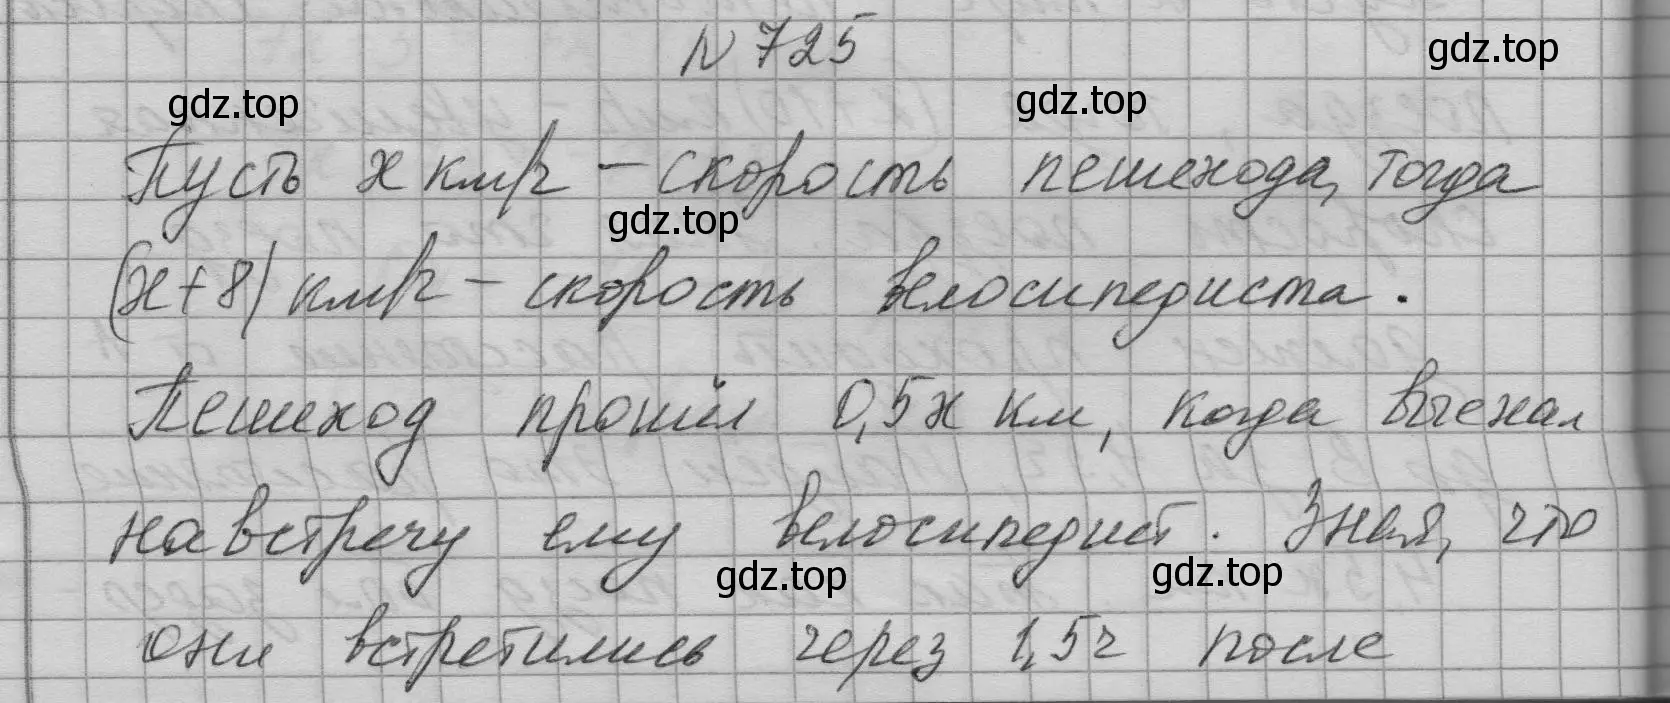 N 725
gdz.top
gdz.top
gdz.top
Пусть x км/ч – скорость пешехода, тогда
gdz.top
(x+8) км/ч – скорость велосипедиста.
Пешеход прошёл 0,5x км, когда выехал
навстречу ему велосипедист. Зная, что
gdz.top
gdz.top
они встретились через 1,5ч после